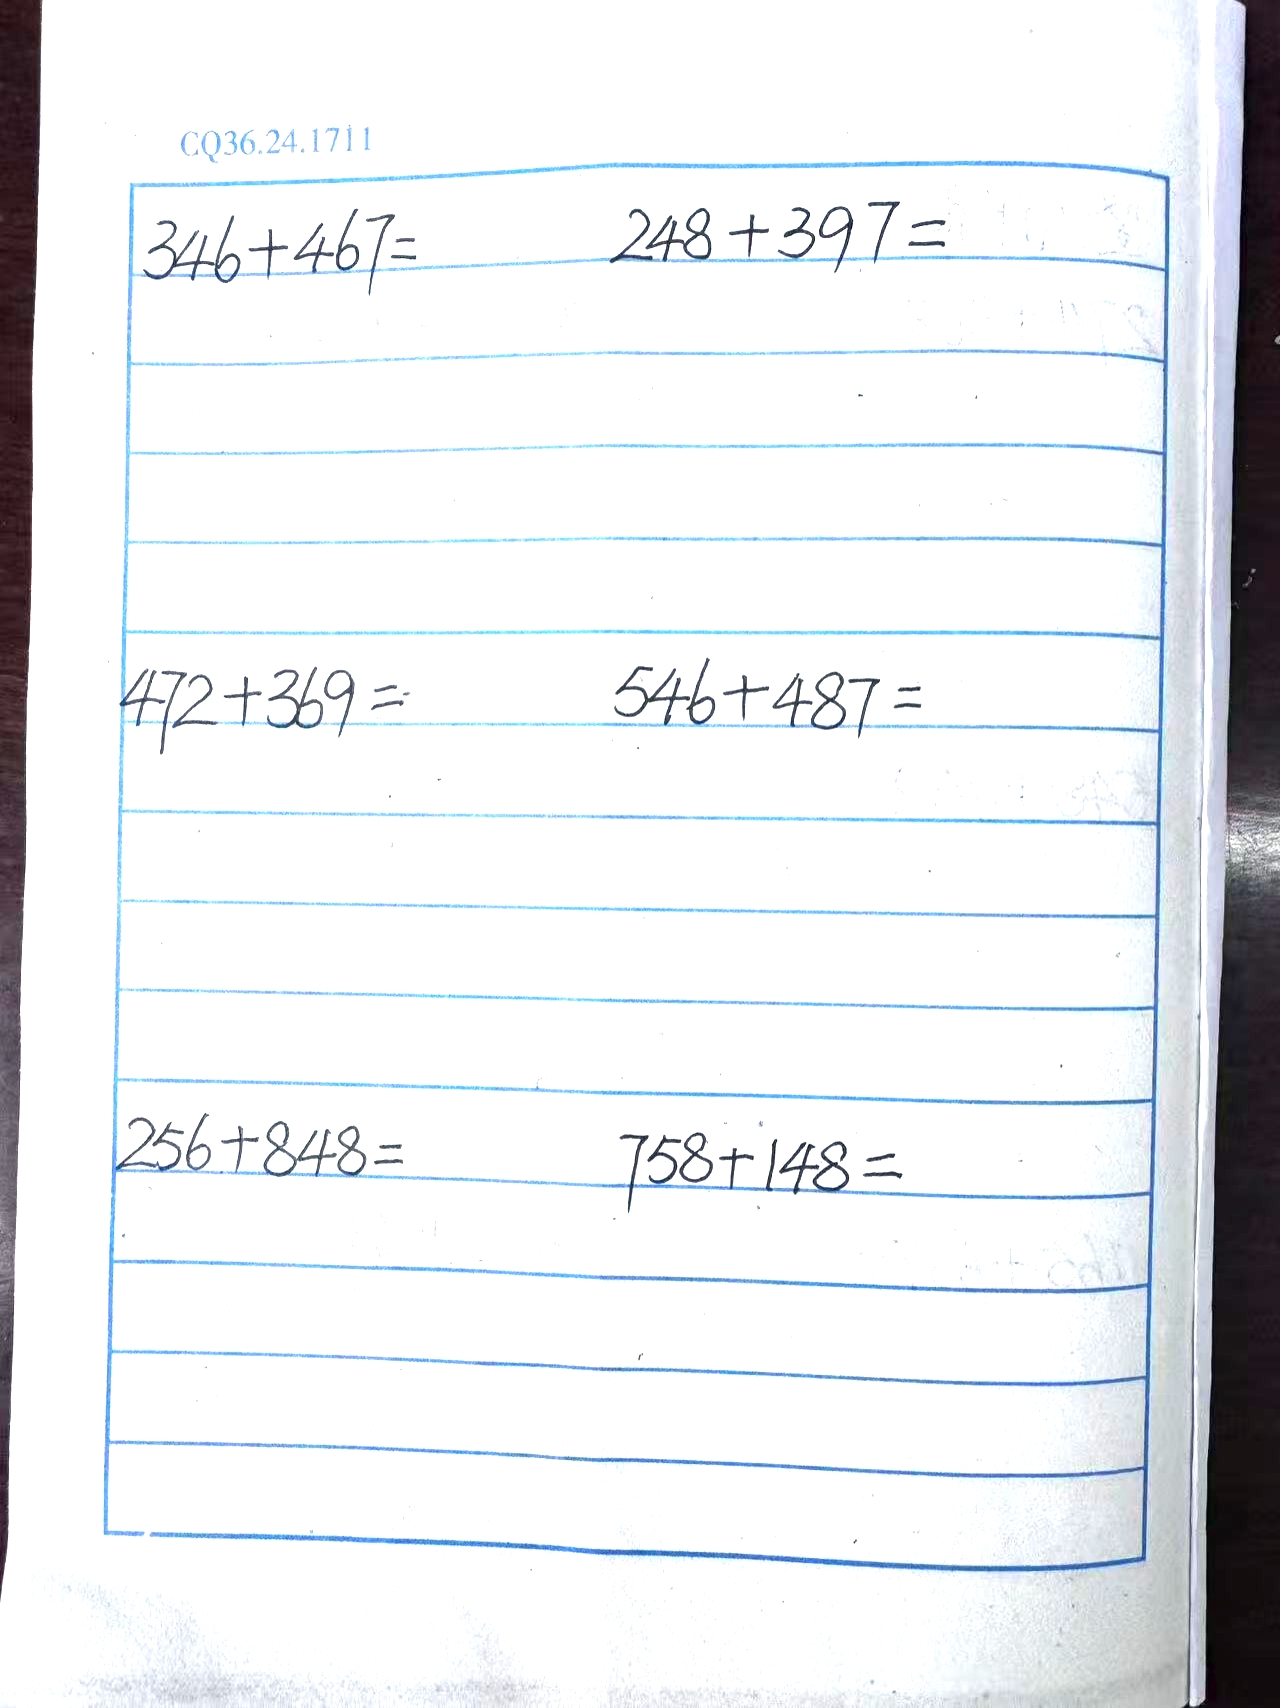 CQ36.24.1711
346+467= 248+397=
472+369= 546+487=
256+848= 758+148=